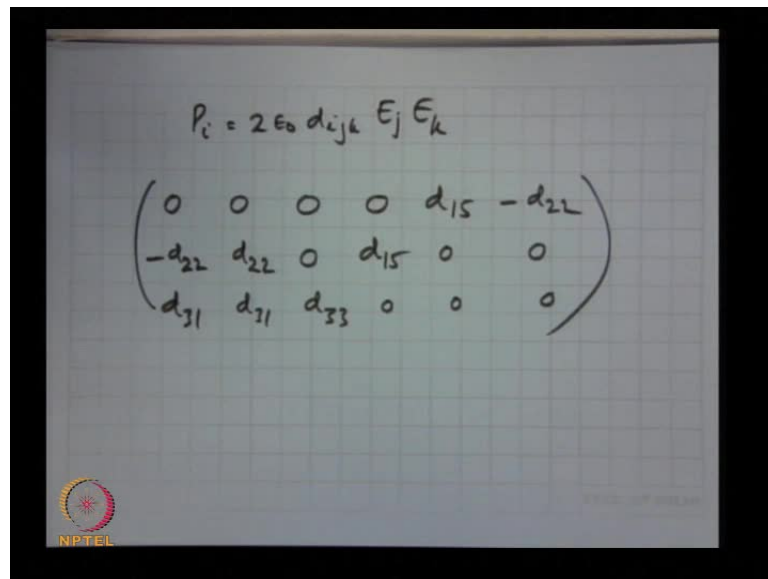 Pi = 2 ε0 dijk Ej Ek
0 0 0 0 d15 -d22
-d22 d22 0 d15 0 0
d31 d31 d33 0 0 0
NPTEL